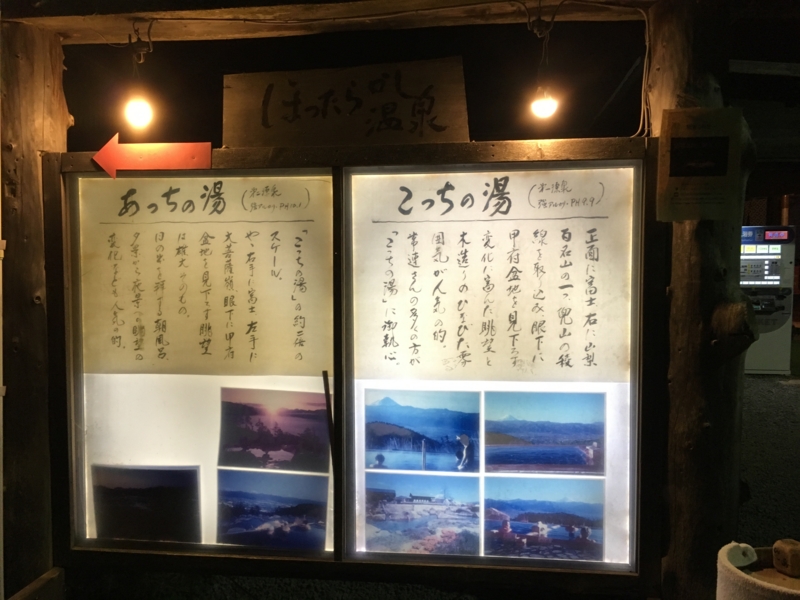 ほったらかし
温泉
こっちの湯
正面に富士、右に山梨
百名山の一つ、乾徳山の稜
線を取り込み、眼下に
甲府盆地を見下ろす
変化に富んだ眺望と
木造りのひなびた雰
囲気が人気の的。
常連さんの多くの方が
「こっちの湯」に御執心。
あっちの湯
「こっちの湯」の約二倍の
スケール。
やゝ右手に富士 左手に
大菩薩嶺 眼下に甲府
盆地を見下ろす眺望
は雄大そのもの。
日の出を拝する朝風呂
夕景から夜景への眺望の
変化もとても人気の的。